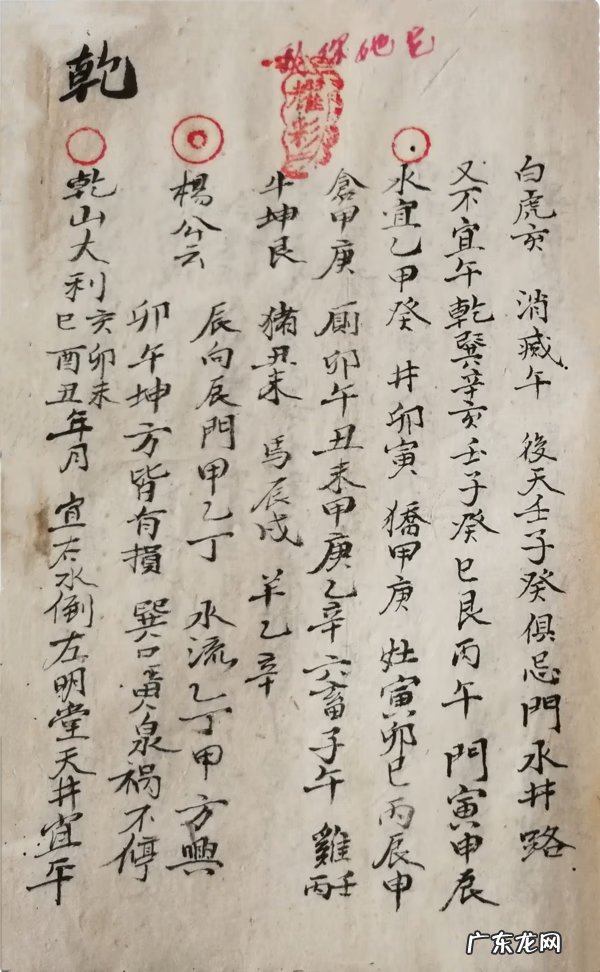 白虎亥 消滅午 後天壬子癸俱忌門水井路
又不宜午乾巽辛亥壬子癸巳艮丙午 門寅申辰
水宜乙甲癸 井卯寅 甲庚 灶寅卯巳丙辰申
倉甲庚 廁卯午丑未甲庚乙辛 六畜子午 雞壬丙
牛坤艮 豬丑未 馬辰戌 羊乙辛
楊公云
辰向辰門甲乙丁 水流乙丁甲方興
卯午坤方皆有損 巽口黃泉禍不停
乾
乾山大利亥卯未巳酉丑年月 宜右水倒左明堂天井宜平
耀彩
广东龙网